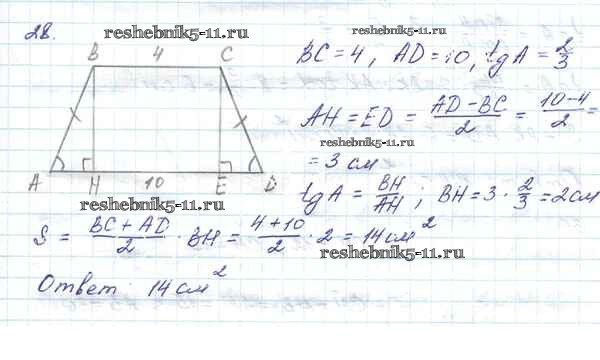 28.
reshebnik5-11.ru
B 4 C
A H 10 E D
BC = 4, AD = 10, tgA = 2/3
reshebnik5-11.ru
AH = ED = (AD - BC)/2 = (10-4)/2 =
reshebnik5-11.ru
= 3 см
tgA = BH/AH; BH = 3 · 2/3 = 2 см
reshebnik5-11.ru
S = (BC + AD)/2 · BH = (4+10)/2 · 2 = 14 см²
reshebnik5-11.ru
Ответ: 14 см²